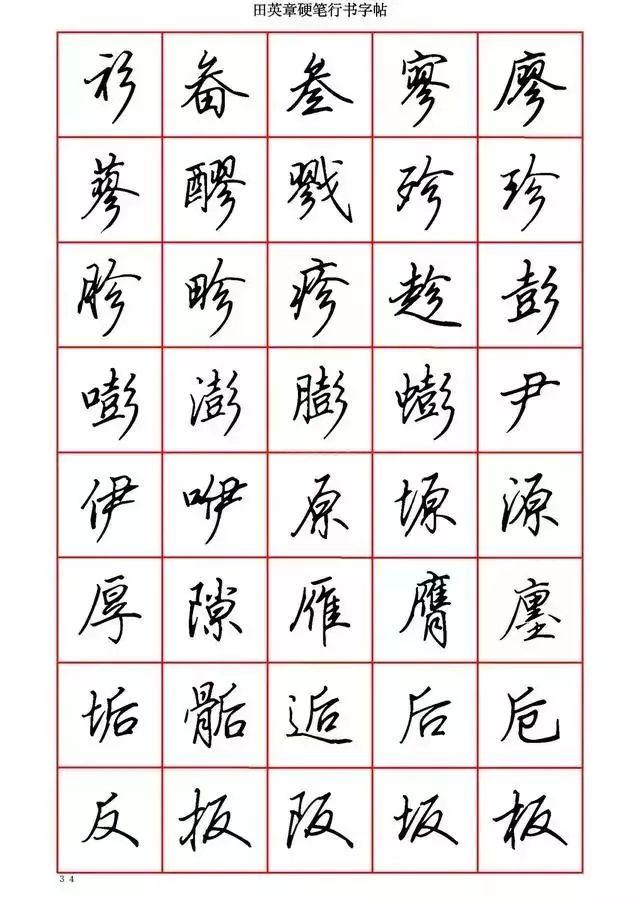 田英章硬笔行书字帖
衫畚叁寥廖
蓼醪戮殄珍
胗畛疹趁彭
嘭澎膨蟛尹
伊咿原塬源
厚隙雁膺廛
垢骺逅后卮
反扳阪坂板
34